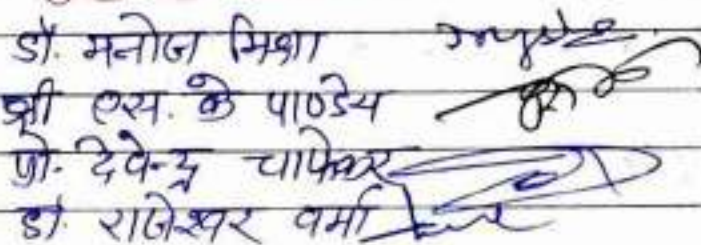 डॉ. मनोज मिश्रा
श्री एस. के पाण्डेय
प्रो. देवेन्द्र चाफेकर
डॉ. राजेश्वर वर्मा